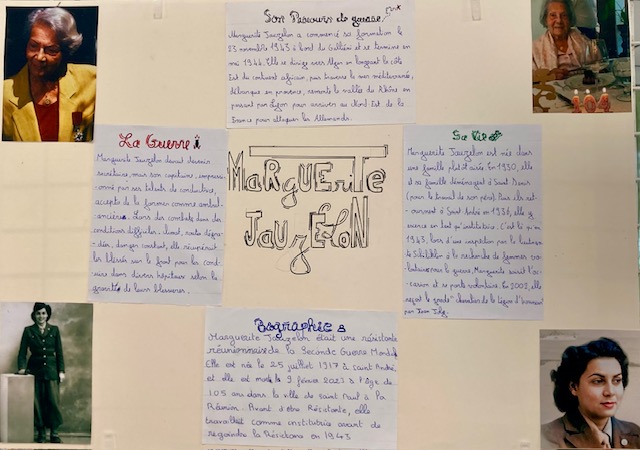 Son Parcours de guerre
Marguerite Jauzelon a commencé sa formation le
23 novembre 1943 à bord du Galliéni et se termine en
mai 1944. Elle se dirige vers Alger en longeant la côte
Est du continent africain, puis traverse la mer méditerranée,
débarque en provence, remonte la vallée du Rhône en
passant par Lyon pour arriver au Nord Est de la
France pour attaquer les Allemands.
La Guerre
Marguerite Jauzelon devait devenir
secrétaire, mais son capitaine, impressi-
onné par ses talents de conductrice,
accepte de la former comme ambul-
ancière. Lors des combats dans des
conditions difficiles: climat, route dégra-
dée, danger constant, elle récupérait
les blessés sur le front pour les cond-
uire dans divers hôpitaux selon la
gravité de leurs blessures.
MARguERiTe
JAuzELoN
Sa Vie
Marguerite Jauzelon est née dans
une famille plutôt aisée. En 1930, elle
et sa famille déménagent à Saint Denis
(pour le travail de son père). Puis ils ret-
ournent à Saint André en 1936, elle y
exerce en tant qu'institutrice. C'est là qu'en
1943, lors d'une inspection par le lieutenant
à la recherche de femmes vo-
lontaires pour la guerre, Marguerite saisit l'oc-
casion et se porte volontaire. En 2002, elle
reçoit le grade "chevalier de la Légion d'honneur"
par
Biographie
Marguerite Jauzelon était une résistante
réunionnaise de la Seconde Guerre Mondiale
Elle est née le 25 juillet 1917 à saint André
et elle est morte le 9 février 2023 à l'âge de
105 ans dans la ville de saint Paul à La
Réunion. Avant d'être Résistante, elle
travaillait comme institutrice avant de
rejoindre la Résistance en 1943
104